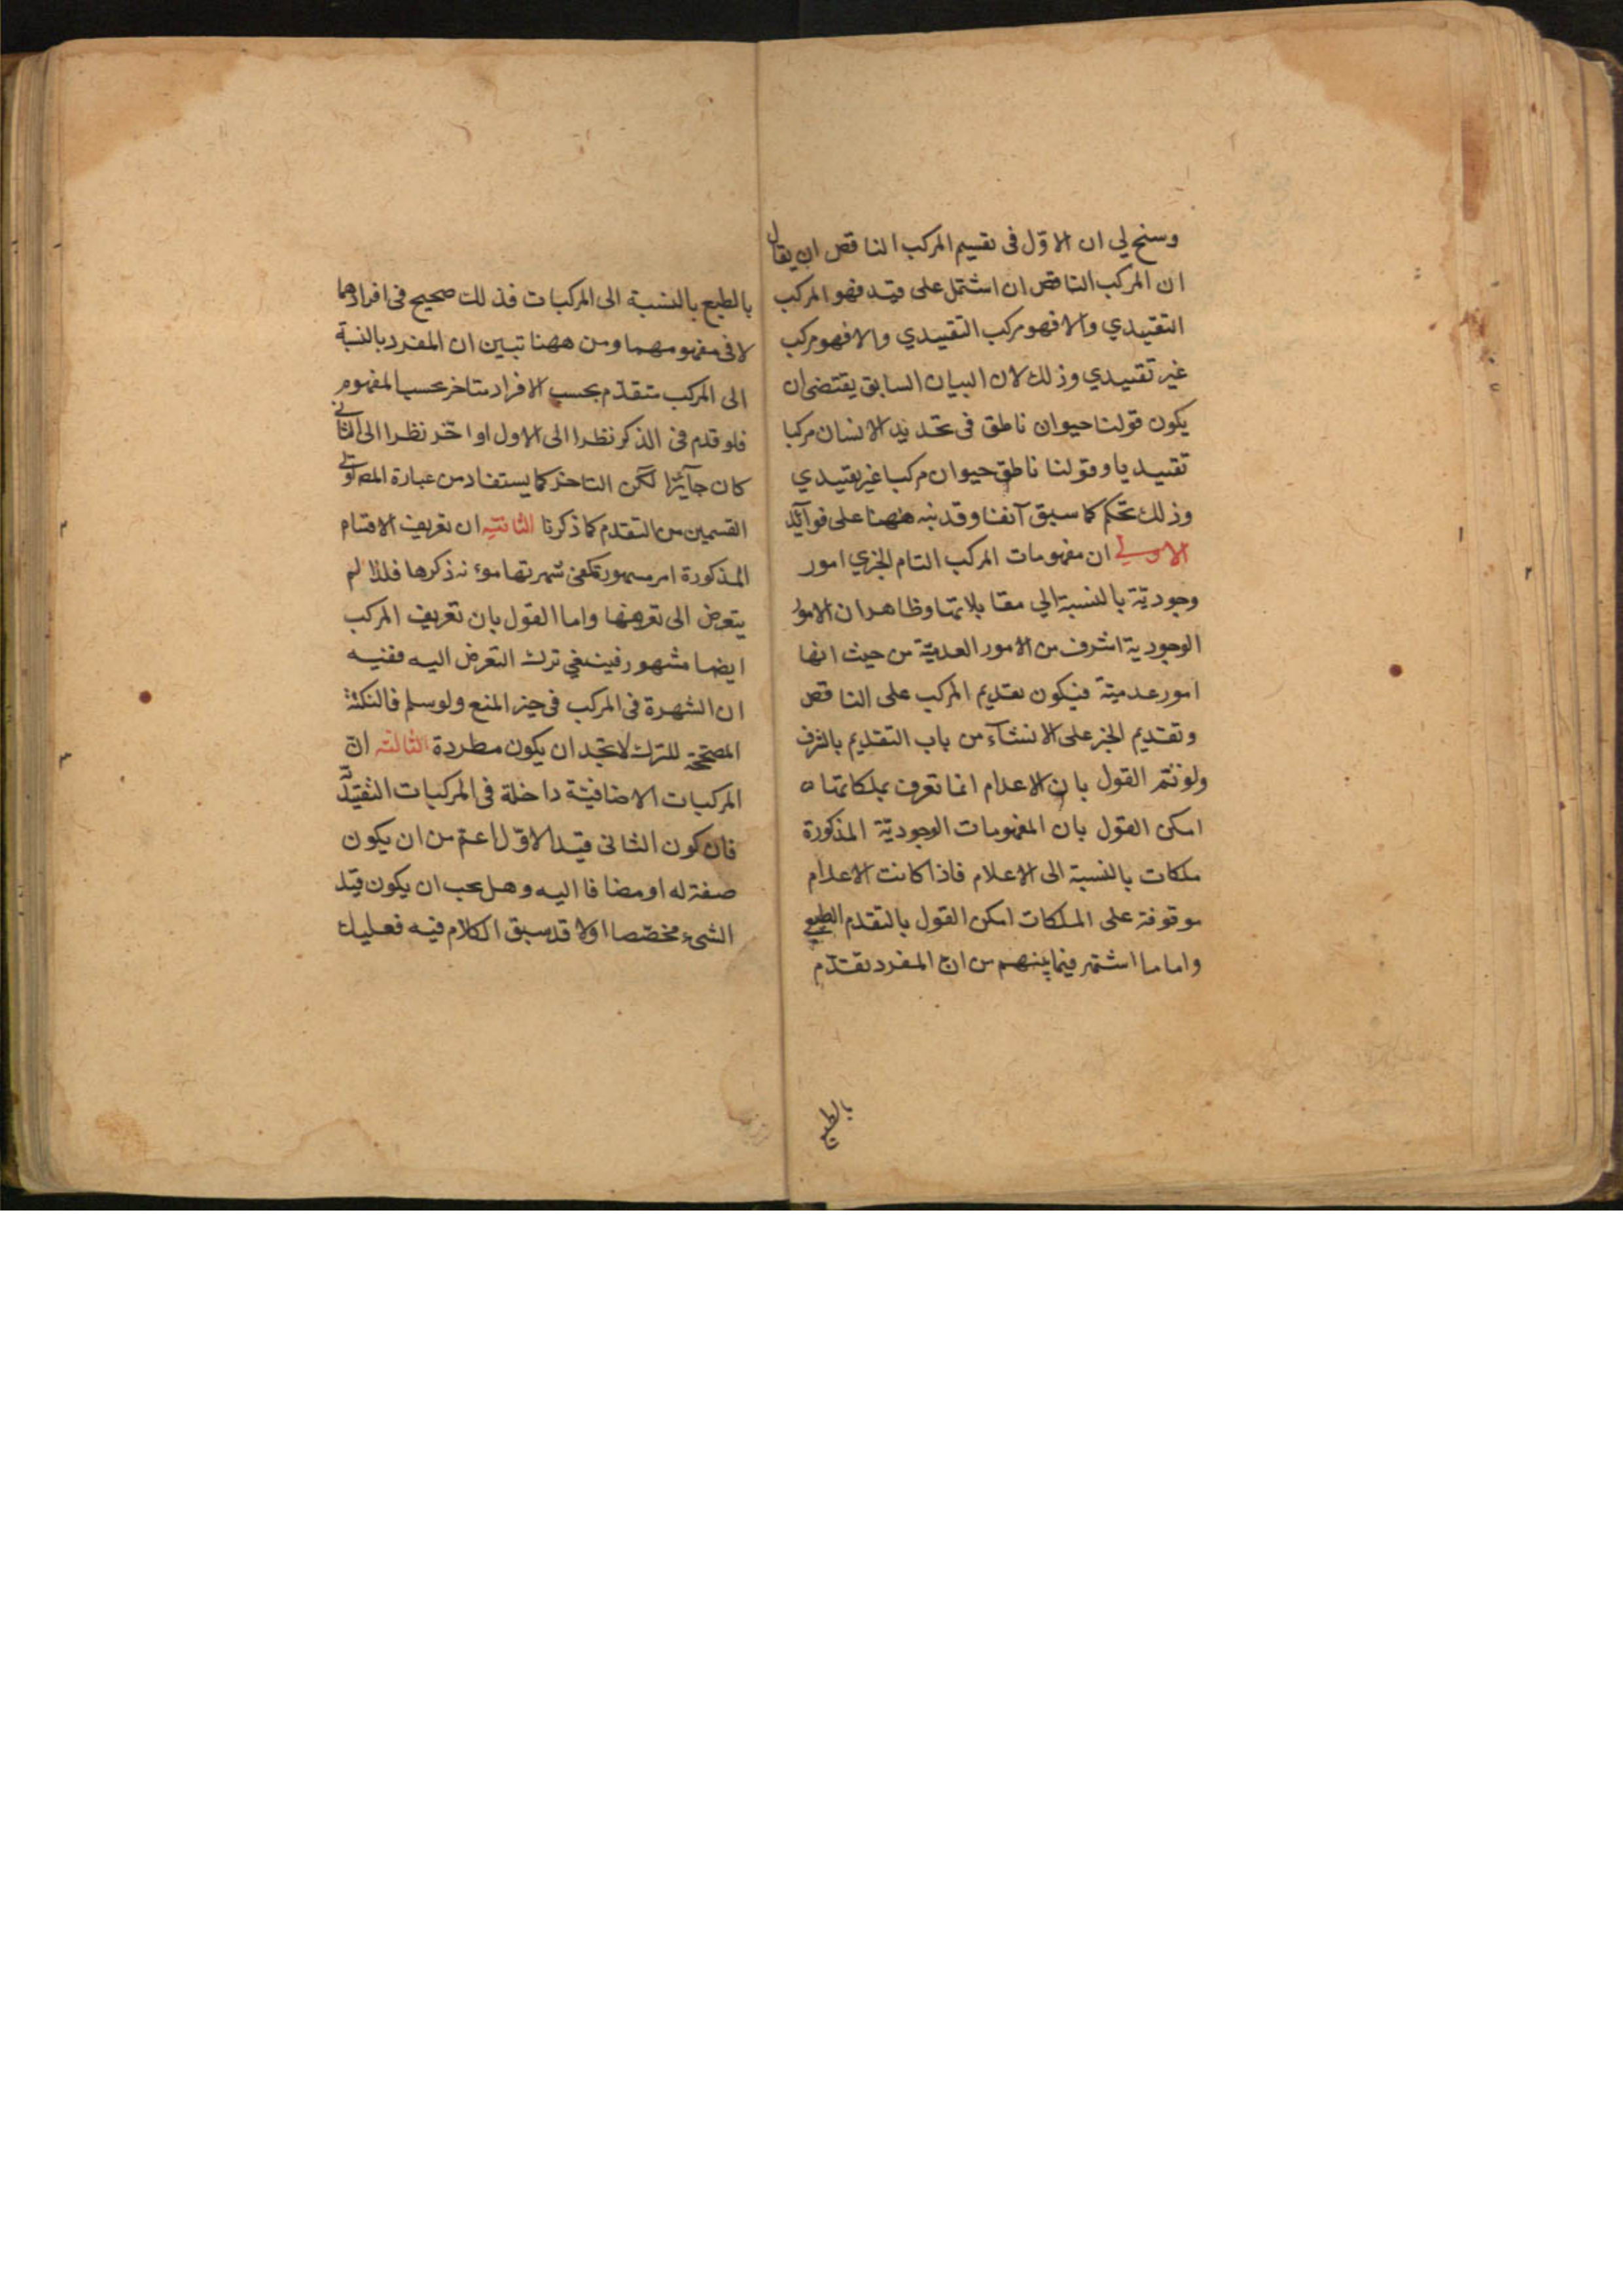 وسنح لي ان الاوّل فى تقسيم المركب الناقص ان يقال
ان المركب الناقص ان اشتمل على قيد فهو المركب
التقييدي والا فهو مركب التقييدي والا فهو مركب
غير تقييدي وذلك لان البيان السابق يقتضى ان
يكون قولنا حيوان ناطق فى تحديد الانسان مركبا
تقييديا وقولنا ناطق حيوان مركبا غير تقييدي
وذلك تحكم كما سبق آنفا وقد نبه ههنا على فوآئد
الاولى ان مفهومات المركب التام الخبري امور
وجوديّة بالنسبة الي مقابلاتها وظاهر ان الامور
الوجودية اشرف من الامور العدميّة من حيث انها
امور عدميّة فيكون تقديم المركب على الناقص
وتقديم الخبر على الانشاء من باب التقديم بالشرف
ولو تم القول بان الاعدام انما تعرف بملكاتها
امكن القول بان المفهومات الوجوديّة المذكورة
ملكات بالنسبة الى الاعدام فاذا كانت الاعدام
موقوفة على الملكات امكن القول بالتقدم الطبيعي
واما ما اشتهر فيما بينهم من ان المفرد تقدّم
بالطبع
بالطبع بالنسبة الى المركبات فذلك صحيح فى افرادهما
لا فى مفهومهما ومن ههنا تبين ان المفرد بالنسبة
الى المركب متقدّم بحسب الافراد متاخر بحسب المفهوم
فلو قدم فى الذكر نظرا الى الاول او اخّر نظرا الى الثانى
كان جآئزا لكن التاخر كما يستفاد من عبارة المص
القسمين من التقدم كما ذكرنا الثانية ان تعريف الاقسام
المذكورة امر مشهور تكفى شهرتها مؤنة ذكرها فلذا لم
يتعرض الى تعريفها واما القول بان تعريف المركب
ايضا مشهور فينبغي ترك التعرض اليه ففيه
ان الشهرة فى المركب فى حيز المنع ولو سلم فالنكتة
المصححة للترك لا تجد ان يكون مطردة الثالثة انّ
المركبات الاضافيّة داخلة فى المركبات التقييديّة
فان كون الثانى قيد الاوّل اعم من ان يكون
صفة له او مضافا اليه وهل يجب ان يكون قيد
الشيء مخصّصا اولا قد سبق الكلام فيه فعليك